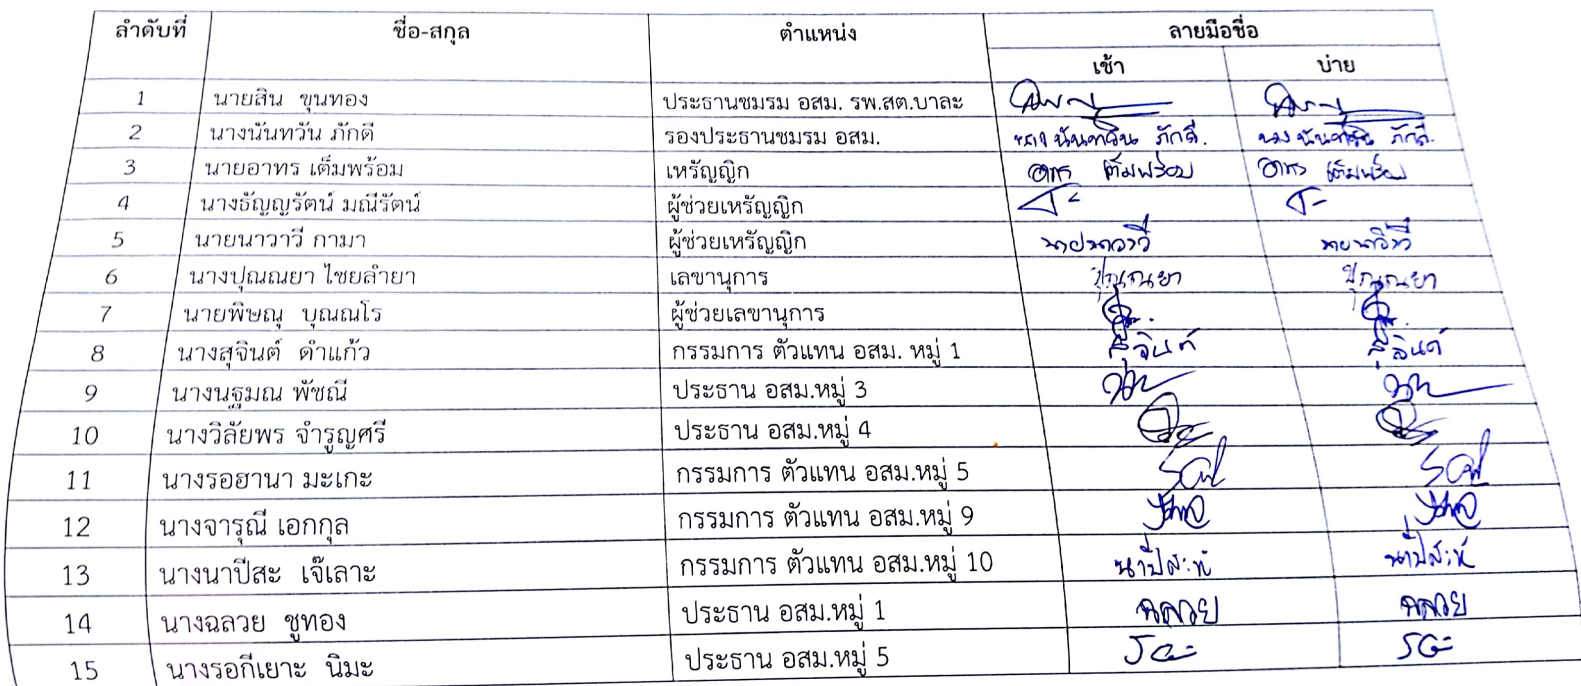 ลำดับที่ ชื่อ-สกุล ตำแหน่ง ลายมือชื่อ
เช้า บ่าย
1 นายสิน ขุนทอง ประธานชมรม อสม. รพ.สต.บาละ
2 นางนันทวัน ภักดี รองประธานชมรม อสม. นาง นันทวัน ภักดี. นาง นันทวัน ภักดี.
3 นายอาทร เต็มพร้อม เหรัญญิก อาทร เต็มพร้อม อาทร เต็มพร้อม
4 นางธัญญรัตน์ มณีรัตน์ ผู้ช่วยเหรัญญิก
5 นายนาวาวี กามา ผู้ช่วยเหรัญญิก นายนาวาวี นายนาวาวี
6 นางปุณณยา ไชยลำยา เลขานุการ ปุณณยา ปุณณยา
7 นายพิษณุ บุณณโร ผู้ช่วยเลขานุการ
8 นางสุจินต์ ดำแก้ว กรรมการ ตัวแทน อสม. หมู่ 1 สุจินต์ สุจินต์
9 นางนฐมณ พัชณี ประธาน อสม.หมู่ 3
10 นางวิลัยพร จำรูญศรี ประธาน อสม.หมู่ 4
11 นางรอฮานา มะเกะ กรรมการ ตัวแทน อสม.หมู่ 5
12 นางจารุณี เอกกุล กรรมการ ตัวแทน อสม.หมู่ 9
13 นางนาปีสะ เจ๊เลาะ กรรมการ ตัวแทน อสม.หมู่ 10
14 นางฉลวย ชูทอง ประธาน อสม.หมู่ 1 ฉลวย ฉลวย
15 นางรอกีเยาะ นิมะ ประธาน อสม.หมู่ 5